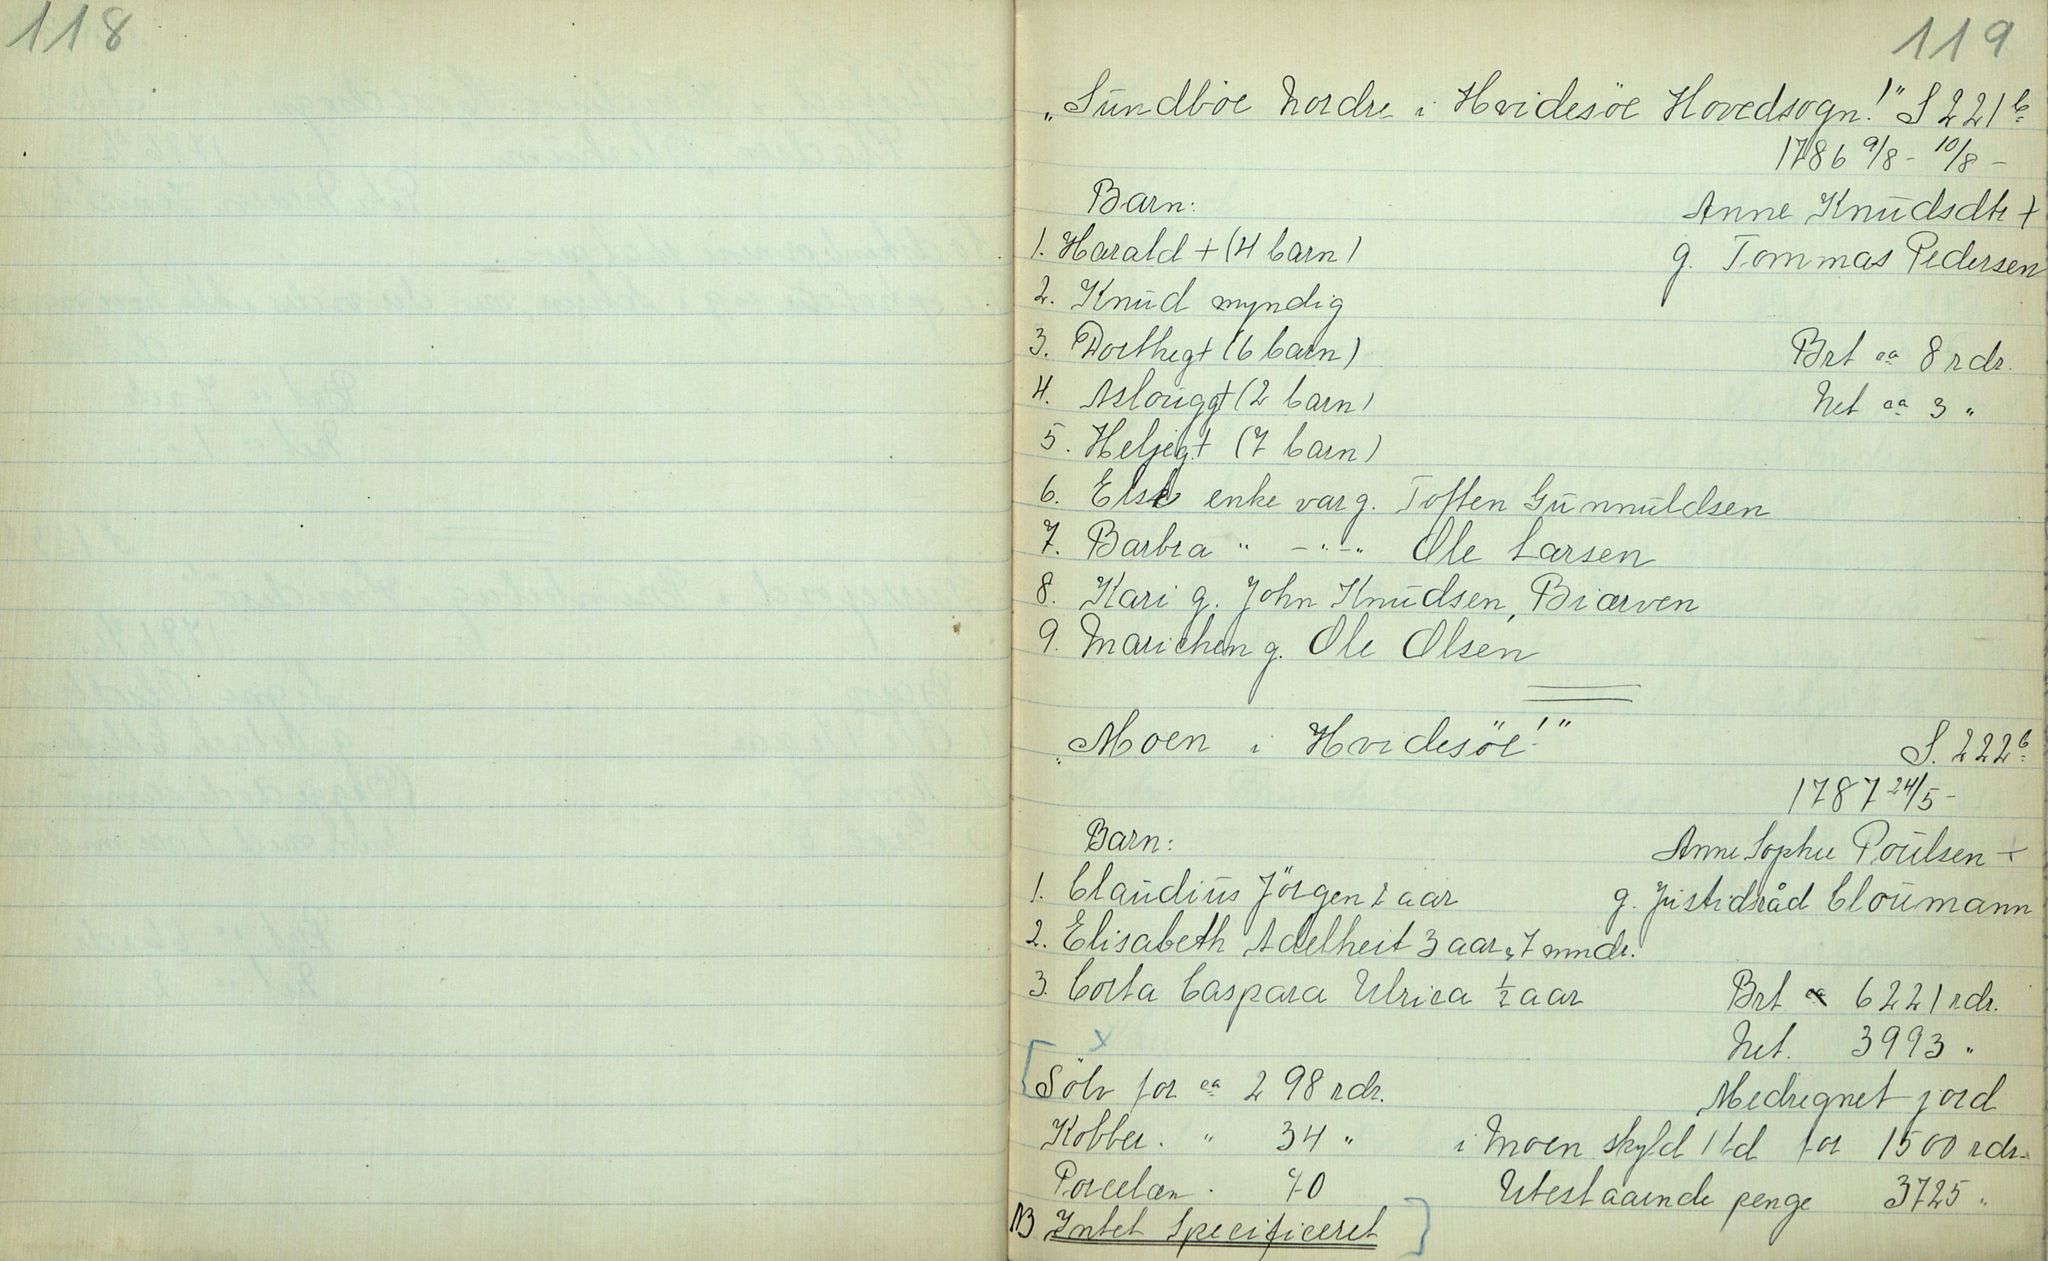 118
119
„Sundböe Nordre i Hvidesöe Hovedsogn!" S 221 b
1786 9/8 - 10/8 -
Barn:
Anne Knudsdtr +
1. Harald + (4 barn)
g. Tommas Pedersen
2. Knud myndig
3. Dorthe g + (6 barn)
Brt ca 8 rdr.
4. Asloug g + (2 barn)
Net ca 3 „
5. Helje g + (7 barn)
6. Else enke var g. Toften Gunnuldsen
7. Barbra " - " - " Ole Larsen
8. Kari g. John Knudsen, Biærven
9. Marichen g. Ole Olsen
„Moen i Hvidesöe!"
S. 222 b
1787 24/5 -
Barn:
Anne Sophie Poulsen +
1. Claudius Jörgen 2 aar
g. Justidsråd Cloumann
2. Elisabeth Adelheit 3 aar, 7 mndr.
3. Corta Caspara Ulrica ½ aar
Brt ca 6221 rdr.
Net. 3993 „
x
[Sölv for ca 298 rdr.
Medregnet jord
Kobber. " 34 "
i Moen skyld 1 td for 1500 rdr.
Porcelæn . 40
Utestaaende penge 3725 „
NB Intet Specificeret ]